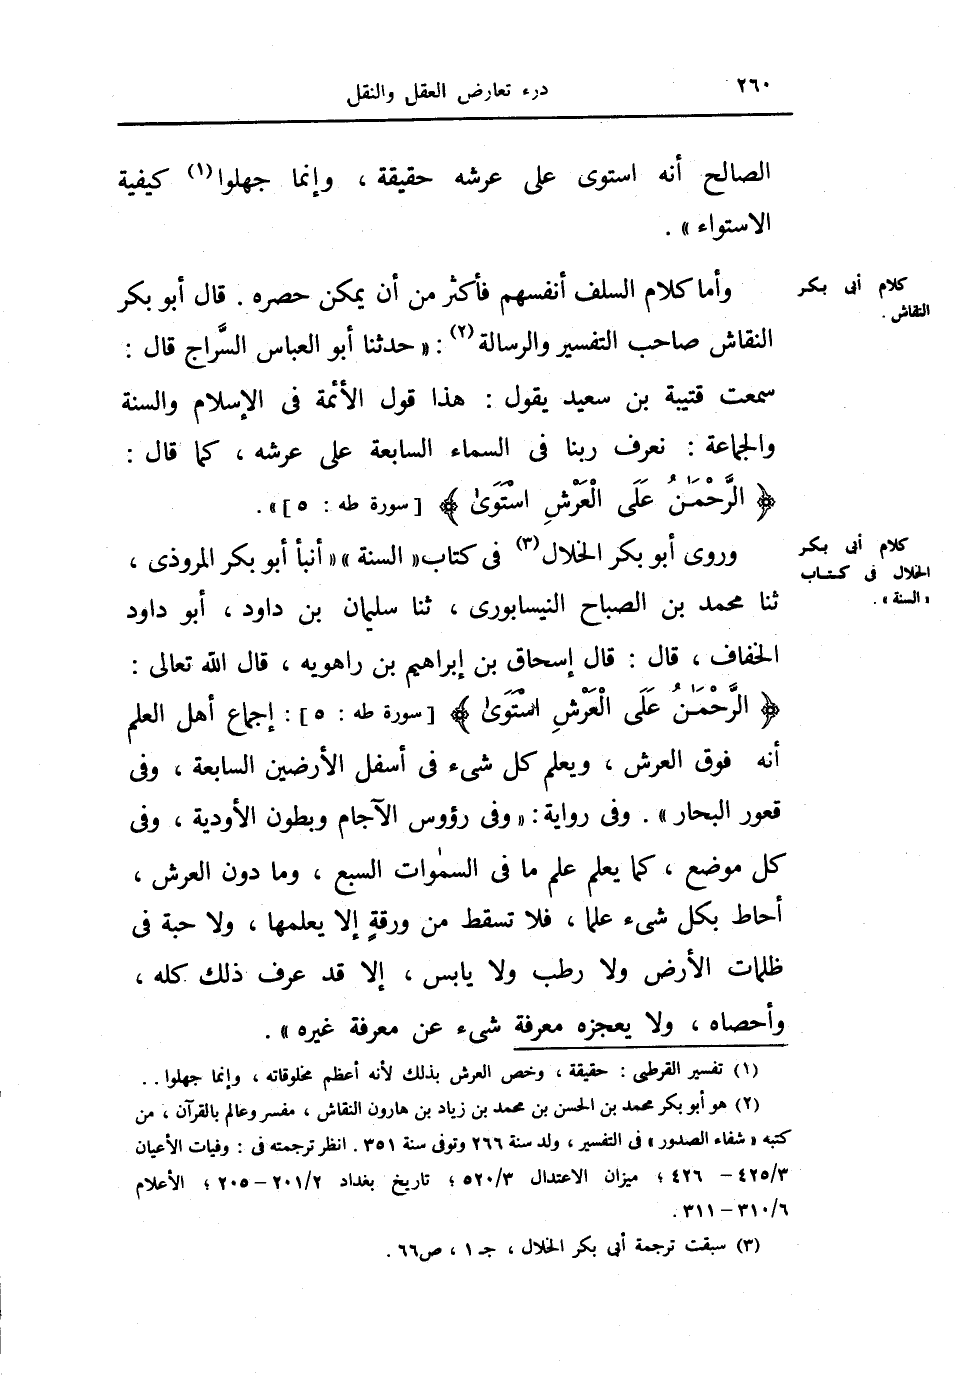 ٢٦٠
درء تعارض العقل والنقل
الصالح أنه استوى على عرشه حقيقة ، وإنما جهلوا(١) كيفية
الاستواء » .
كلام أبى بكر
النقاش .
وأما كلام السلف أنفسهم فأكثر من أن يمكن حصره . قال أبو بكر
النقاش صاحب التفسير والرسالة(٢) : « حدثنا أبو العباس السَّراج قال :
سمعت قتيبة بن سعيد يقول : هذا قول الأئمة فى الإسلام والسنة
والجماعة : نعرف ربنا فى السماء السابعة على عرشه ، كما قال :
﴿ الرَّحْمَـٰنُ عَلَى الْعَرْشِ اسْتَوَىٰ ﴾ [ سورة طه : ٥ ] » .
كلام أبى بكر
الخلال فى كتاب
« السنة » .
وروى أبو بكر الخلال(٣) فى كتاب « السنة » « أنبأ أبو بكر المروذى ،
ثنا محمد بن الصباح النيسابورى ، ثنا سليمان بن داود ، أبو داود
الخفاف ، قال : قال إسحاق بن إبراهيم بن راهويه ، قال الله تعالى :
﴿ الرَّحْمَـٰنُ عَلَى الْعَرْشِ اسْتَوَىٰ ﴾ [ سورة طه : ٥ ] : إجماع أهل العلم
أنه فوق العرش ، ويعلم كل شىء فى أسفل الأرضين السابعة ، وفى
قعور البحار » . وفى رواية : « وفى رؤوس الآجام وبطون الأودية ، وفى
كل موضع ، كما يعلم علم ما فى السمٰوات السبع ، وما دون العرش ،
أحاط بكل شىء علما ، فلا تسقط من ورقةٍ إلا يعلمها ، ولا حبة فى
ظلمات الأرض ولا رطب ولا يابس ، إلا قد عرف ذلك كله ،
وأحصاه ، ولا يعجزه معرفة شىء عن معرفة غيره » .
(١) تفسير القرطبى : حقيقة ، وخص العرش بذلك لأنه أعظم مخلوقاته ، وإنما جهلوا . .
(٢) هو أبو بكر محمد بن الحسن بن محمد بن زياد بن هارون النقاش ، مفسر وعالم بالقرآن ، من
كتبه « شفاء الصدور » فى التفسير ، ولد سنة ٢٦٦ وتوفى سنة ٣٥١ . انظر ترجمته فى : وفيات الأعيان
٤٢٥/٣ – ٤٢٦ ؛ ميزان الاعتدال ٥٢٠/٣ ؛ تاريخ بغداد ٢٠١/٢ – ٢٠٥ ؛ الأعلام
٣١٠/٦ – ٣١١ .
(٣) سبقت ترجمة أبى بكر الخلال ، جـ ١ ، ص٦٦ .